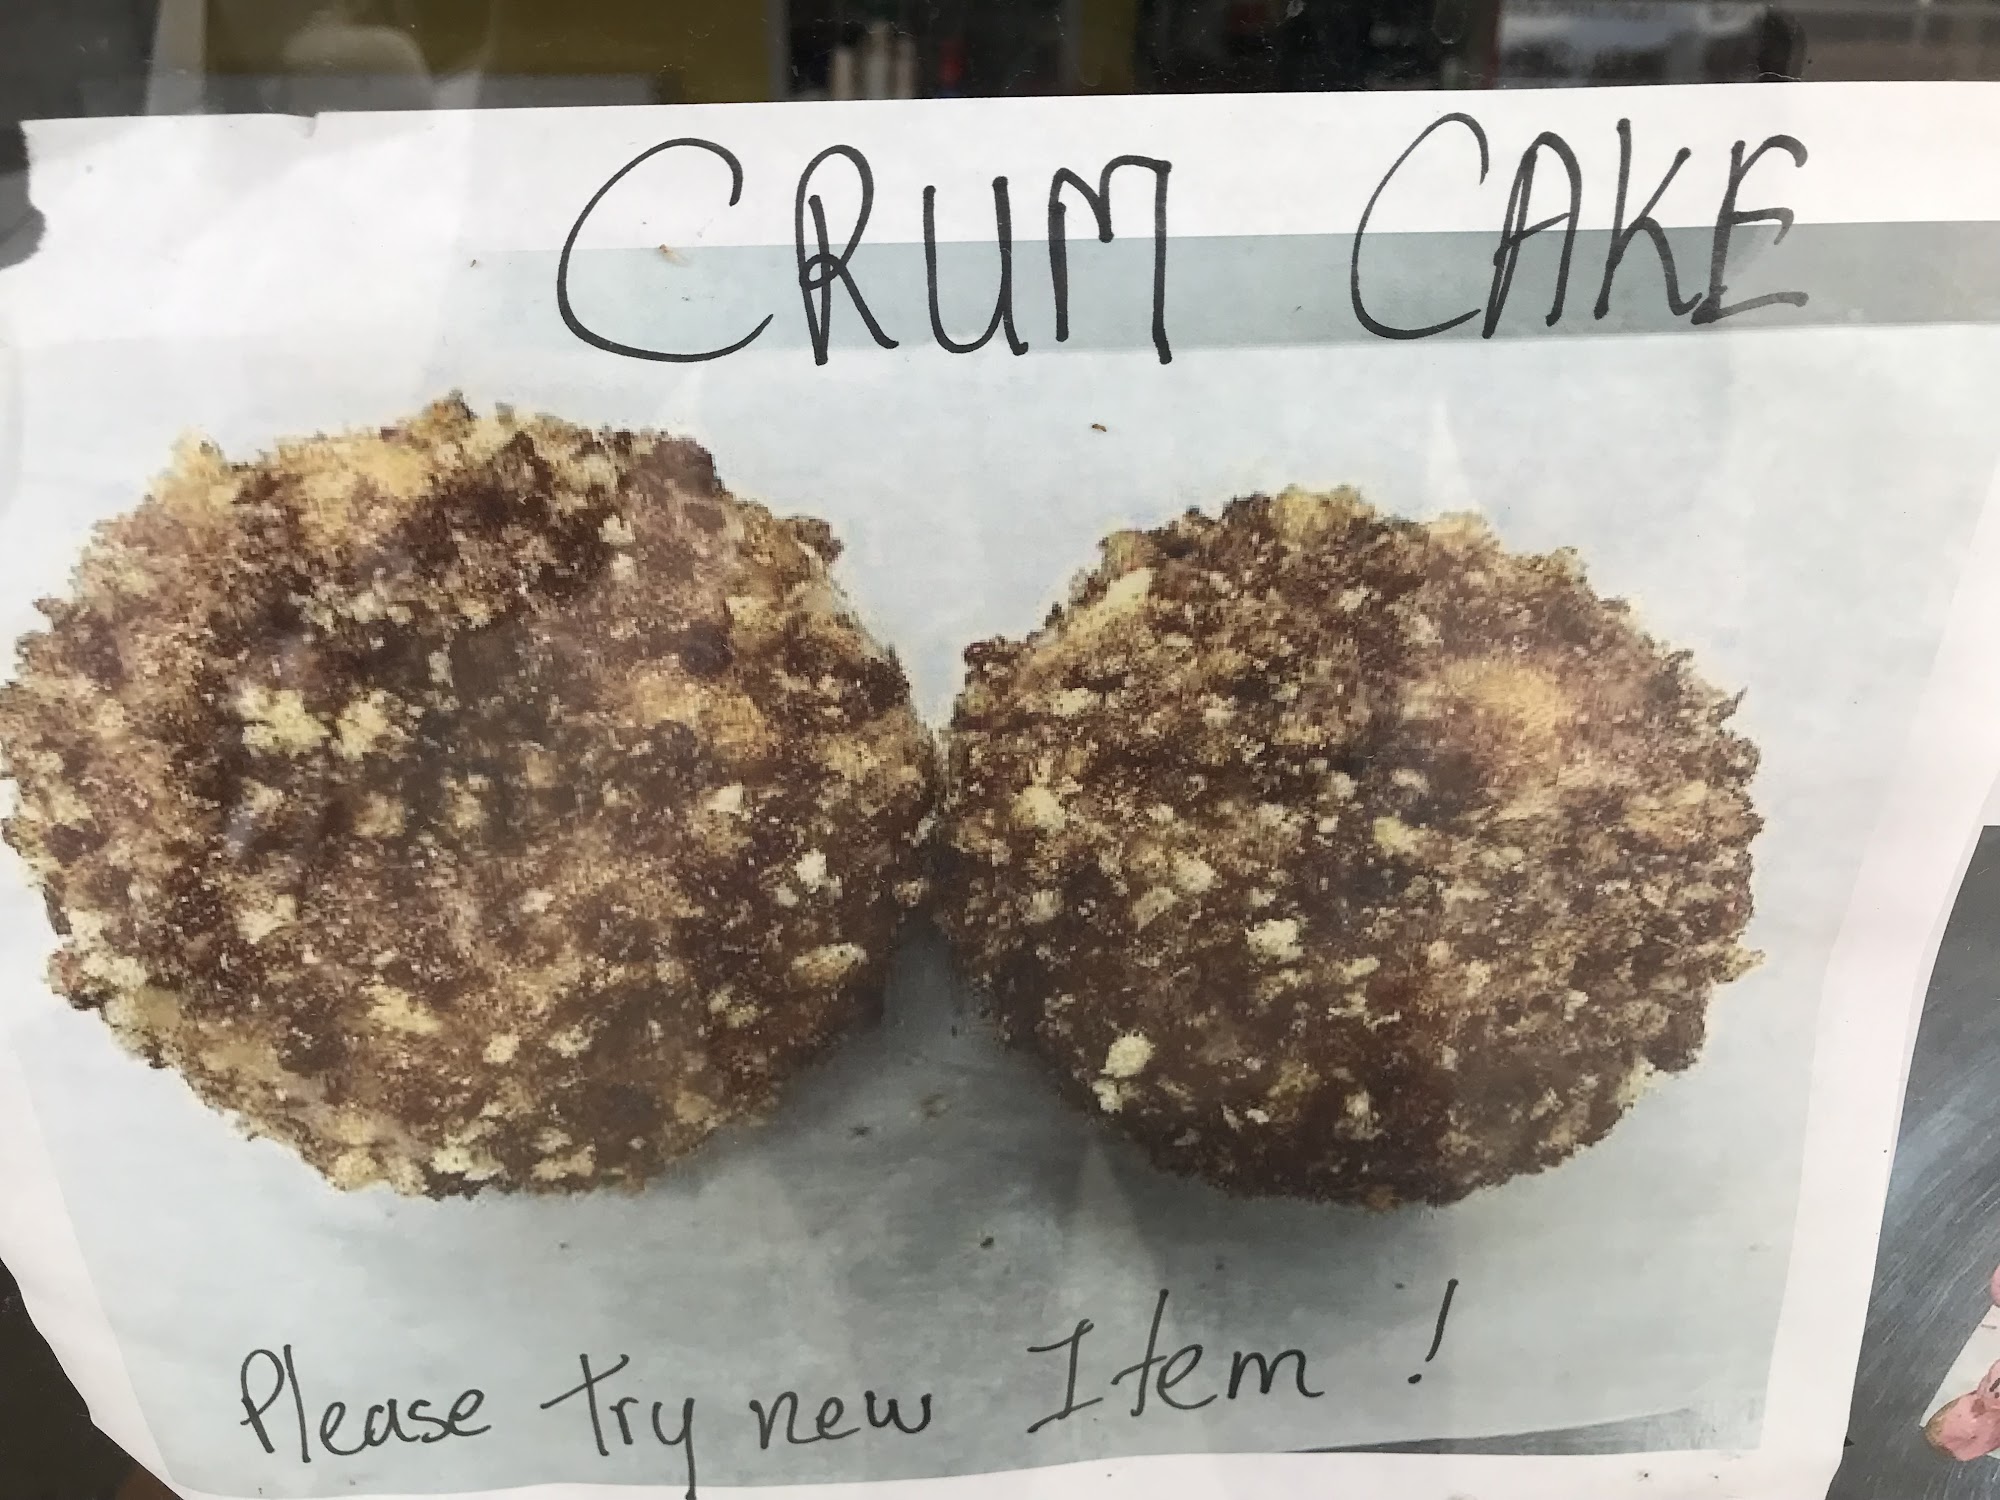 CRUM CAKE
Please try new Item !